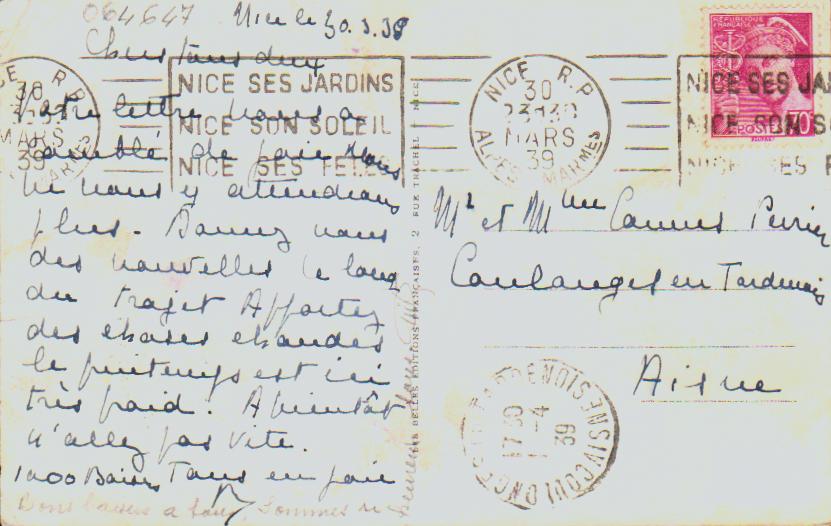 064647
Nice le 30.3.39
Chers tous deux
Votre lettre nous a
comblé de joie Nous
ne nous y attendions
plus. Donnez nous
des nouvelles le long
du trajet Apportez
des choses chaudes
le printemps est ici
très froid. A bientôt
n'allez pas vite.
1000 Baisers Tous en joie
Bons baisers a tous, Sommes
NICE R.P.
30
MARS
39
ALPES MARMES
NICE SES JARDINS
NICE SON SOLEIL
NICE SES FETES
LES BELLES ÉDITIONS FRANÇAISES, 2 RUE TRACHEL - NICE
NICE R.P.
30
23H30
MARS
39
ALPES MARMES
NICE SES JAR
NICE SON S
NICE SES F
RÉPUBLIQUE
FRANÇAISE
POSTES 70
Mr et Mme Camus Perin
Coulanges en Tardenois
Aisne
17 30
1-4
39
AISNE